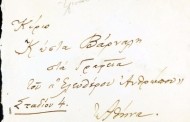 Κύριο
Κώστα Βάρναλη
στά Γραφεῖα
τοῦ "Ἐλευθέρου Ἀνθρώπου"
Σταδίου 4.
Ἀθήνα